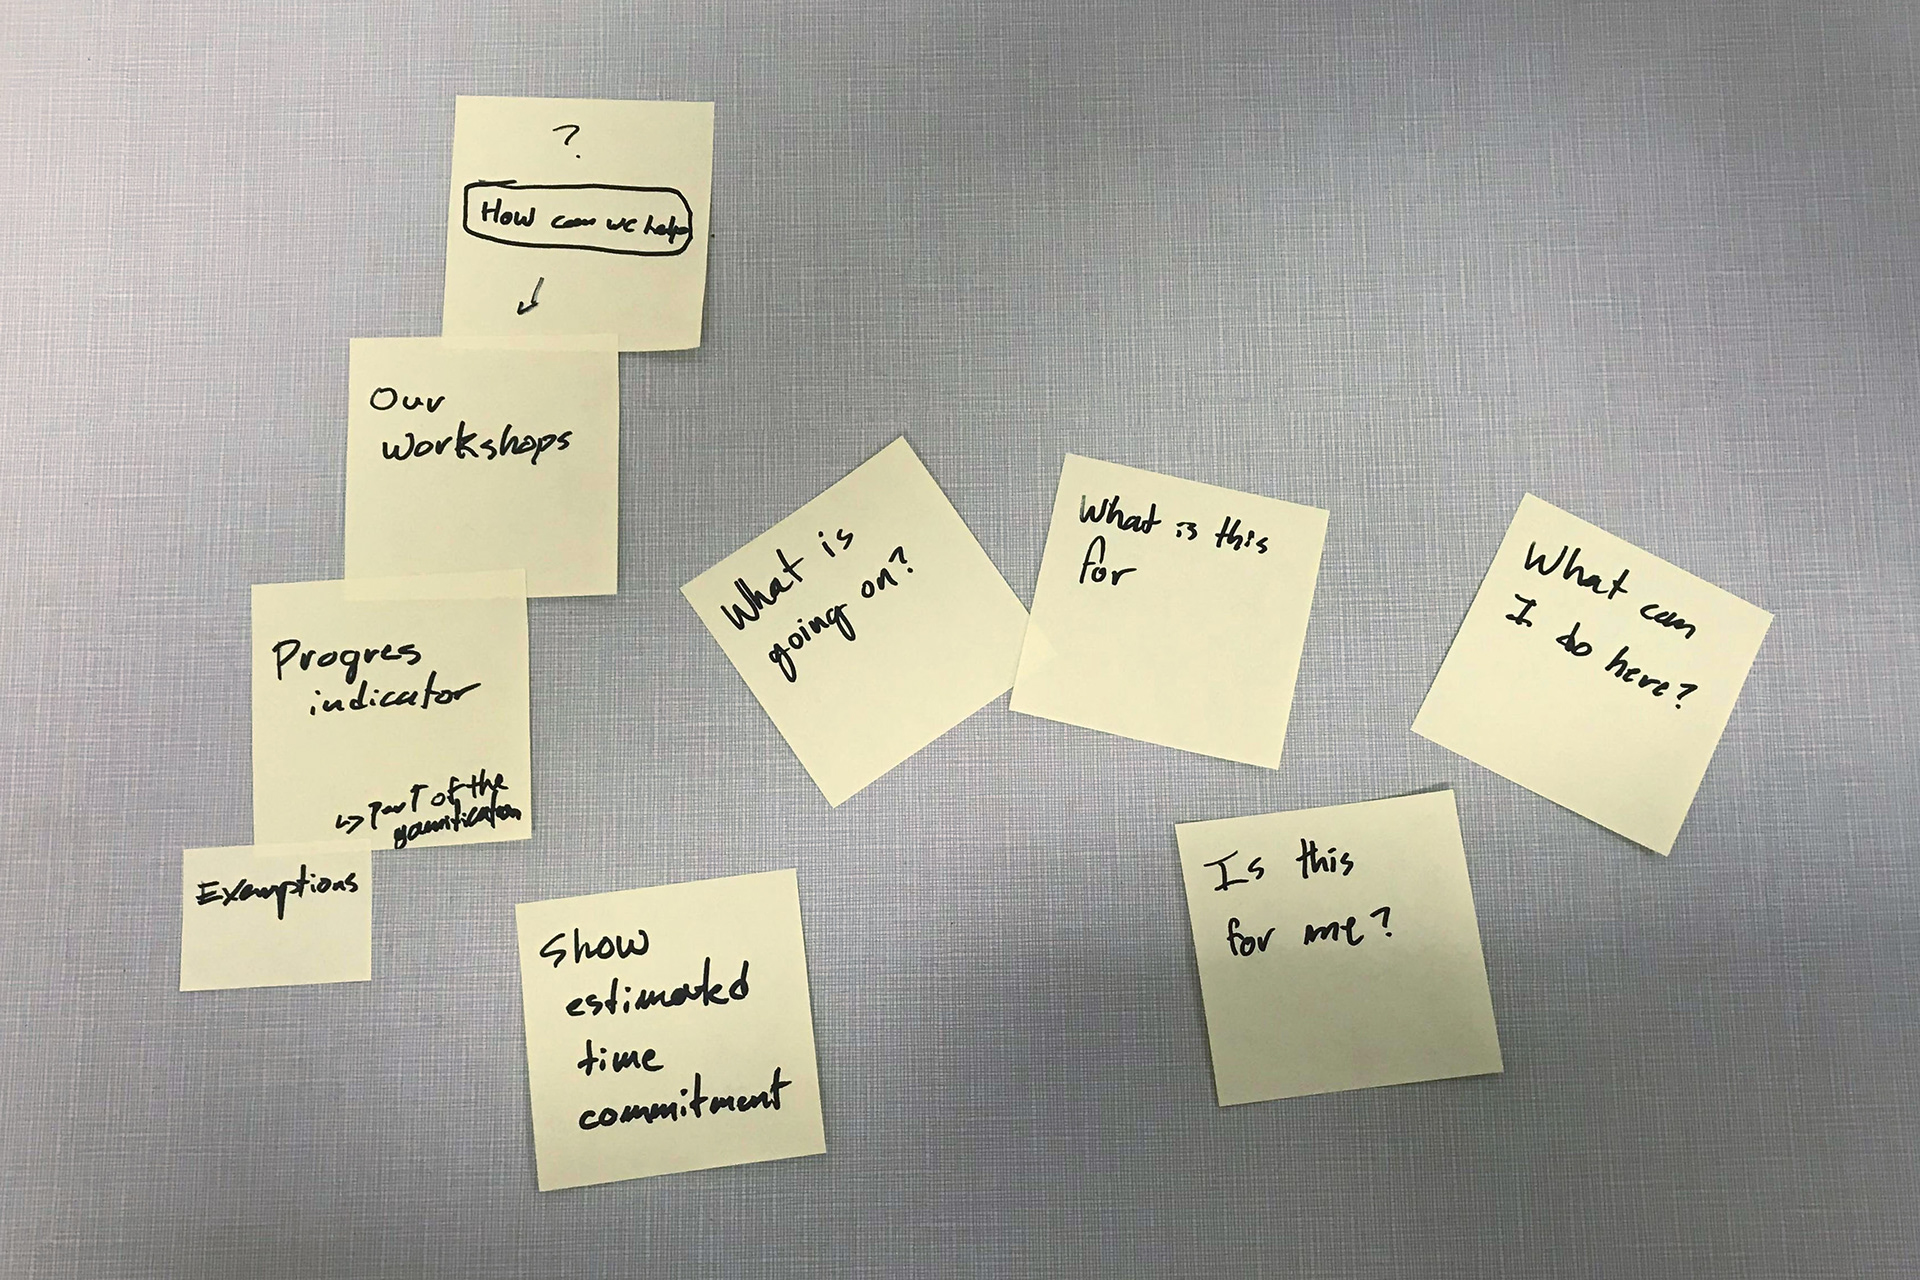 ?
How can we help
Our
workshops
Progres
indicator
↳ Part of the
gamification
Exemptions
Show
estimated
time
commitment
What is
going on?
What is this
for
What can
I do here?
Is this
for me?